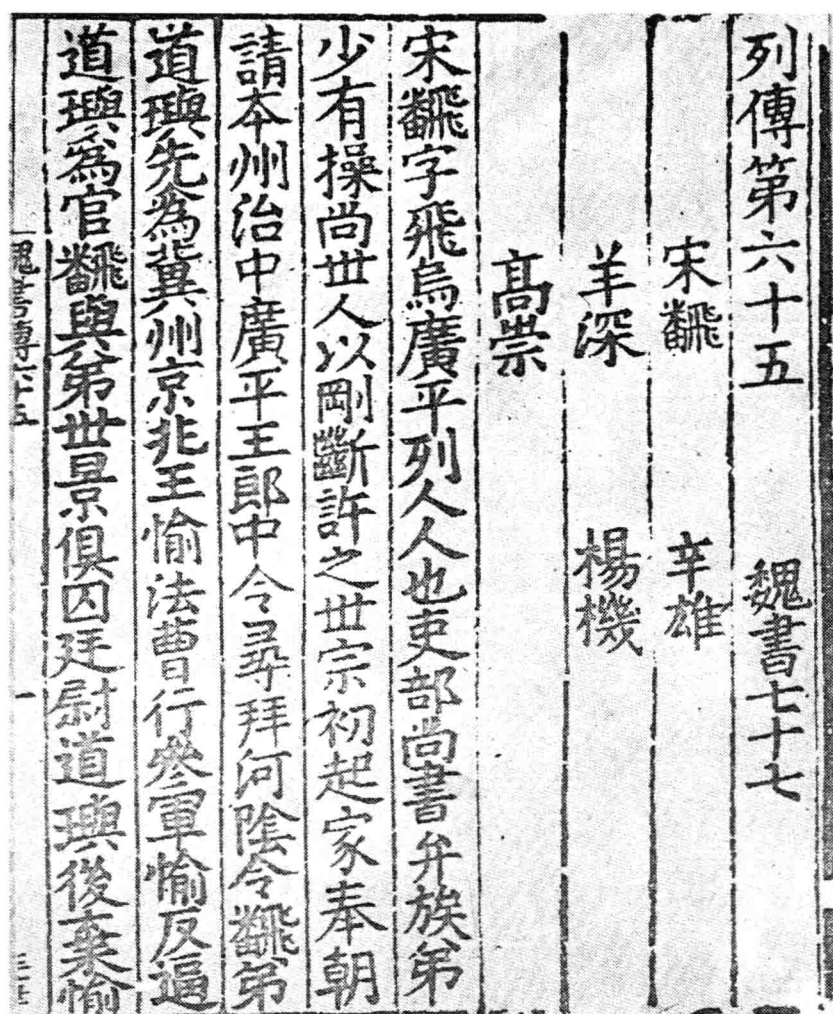 列傳第六十五 魏書七十七
宋飜 辛雄
羊深 楊機
高崇
宋飜字飛烏廣平列人人也吏部尚書弁族弟
少有操尚世人以剛斷許之世宗初起家奉朝
請本州治中廣平王郎中令尋拜河陰令飜弟
道璵先為冀州京兆王愉法曹行參軍愉反逼
道璵為官飜與弟世景俱囚廷尉道璵後棄愉
魏書傳六十五 一